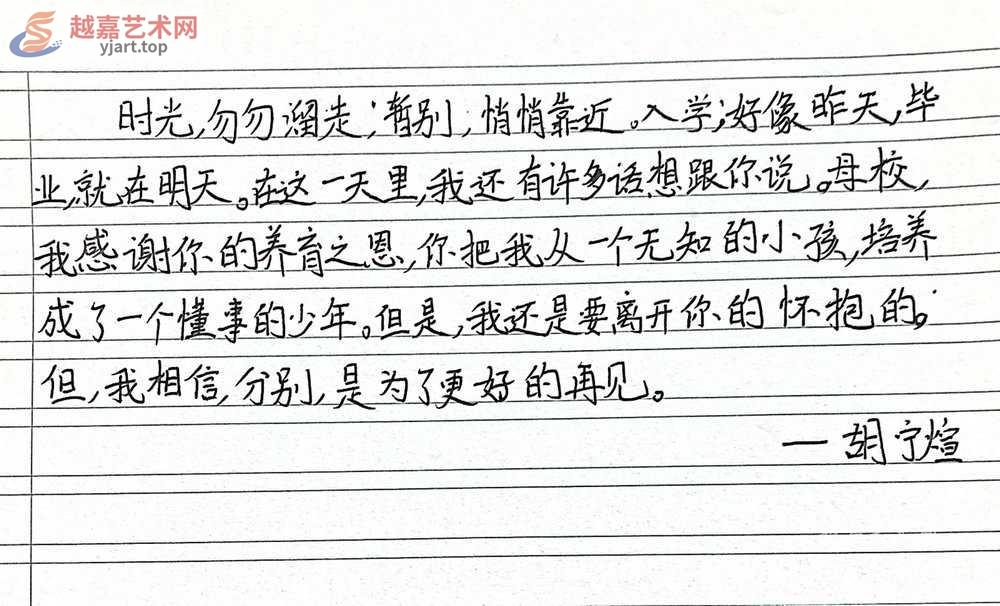 越嘉艺术网
yjart.top
时光,勿勿溜走;暂别,悄悄靠近。入学,好像昨天,毕
业,就在明天。在这一天里,我还有许多话想跟你说。母校,
我感谢你的养育之恩,你把我从一个无知的小孩,培养
成了一个懂事的少年。但是,我还是要离开你的怀抱的。
但,我相信,分别,是为了更好的再见。
一胡宁煊